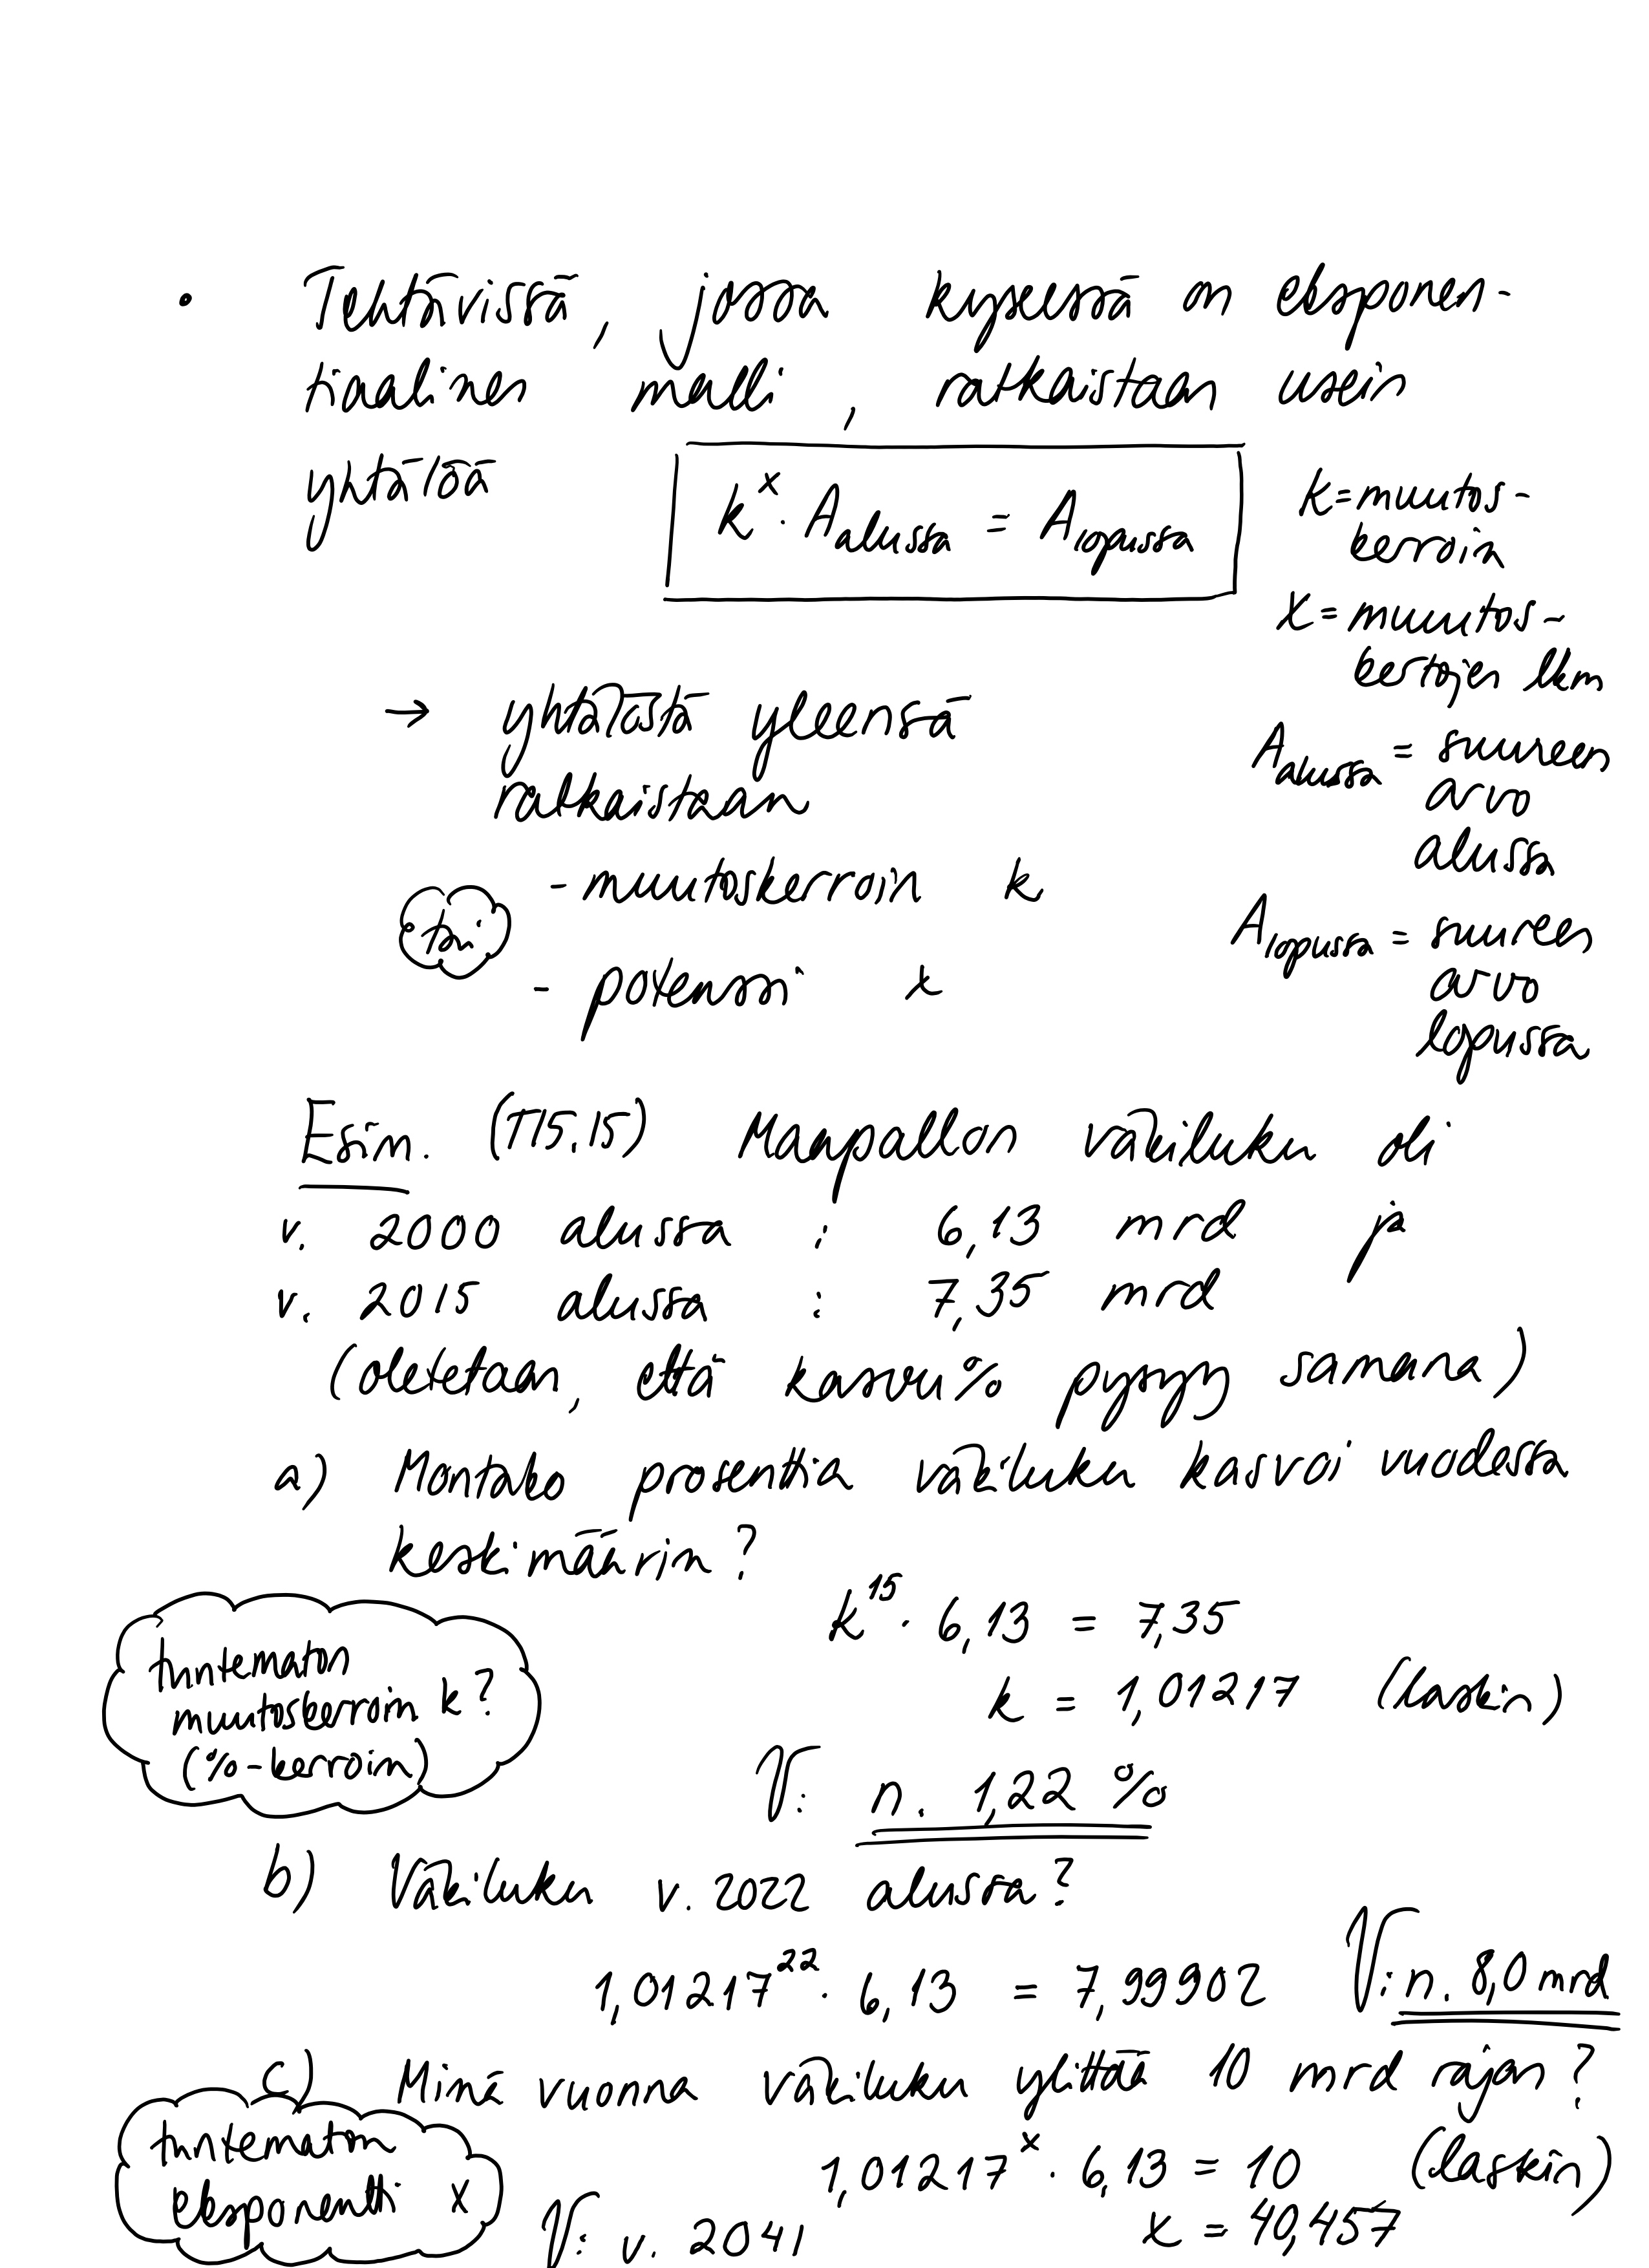 • Tehtävissä, jossa kyseessä on eksponen-
tiaalinen malli, ratkaistaan usein
yhtälöä
k^x · A_alussa = A_lopussa
k = muutos-
kerroin
x = muutos-
kertojen lkm
A_alussa = suureen
arvo
alussa
A_lopussa = suureen
arvo
lopussa
→ yhtälöstä yleensä
ratkaistaan
- muutoskerroin k
tai
- potenssi x
Esim. (T15.15) Maapallon väkiluku oli
v. 2000 alussa : 6,13 mrd ja
v. 2015 alussa : 7,35 mrd
(oletetaan, että kasvu% pysyy samana)
a) Montako prosenttia väkiluku kasvoi vuodessa
keskimäärin?
k^15 · 6,13 = 7,35
k = 1,01217 (laskin)
tuntematon
muutoskerroin k?
(%-kerroin)
V: n. 1,22 %
b) Väkiluku v. 2022 alussa?
1,01217^22 · 6,13 = 7,99902 V: n. 8,0 mrd
c) Minä vuonna väkiluku ylittää 10 mrd rajan?
1,01217^x · 6,13 = 10 (laskin)
x = 40,457
tuntematon
eksponentti x
V: v. 2041